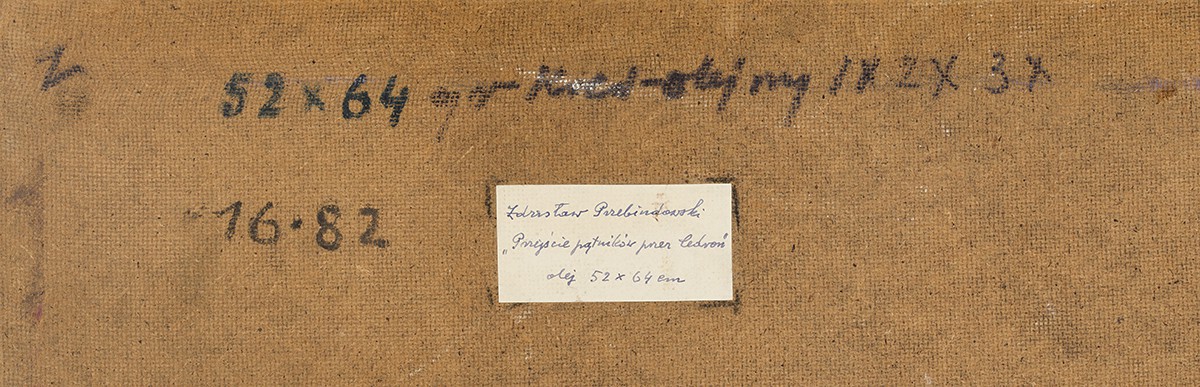 52 x 64 olejny 1x 2x 3x
16·82
Zdzisław Przebindowski
„Przejście pątników przez Cedron"
olej 52 x 64 cm